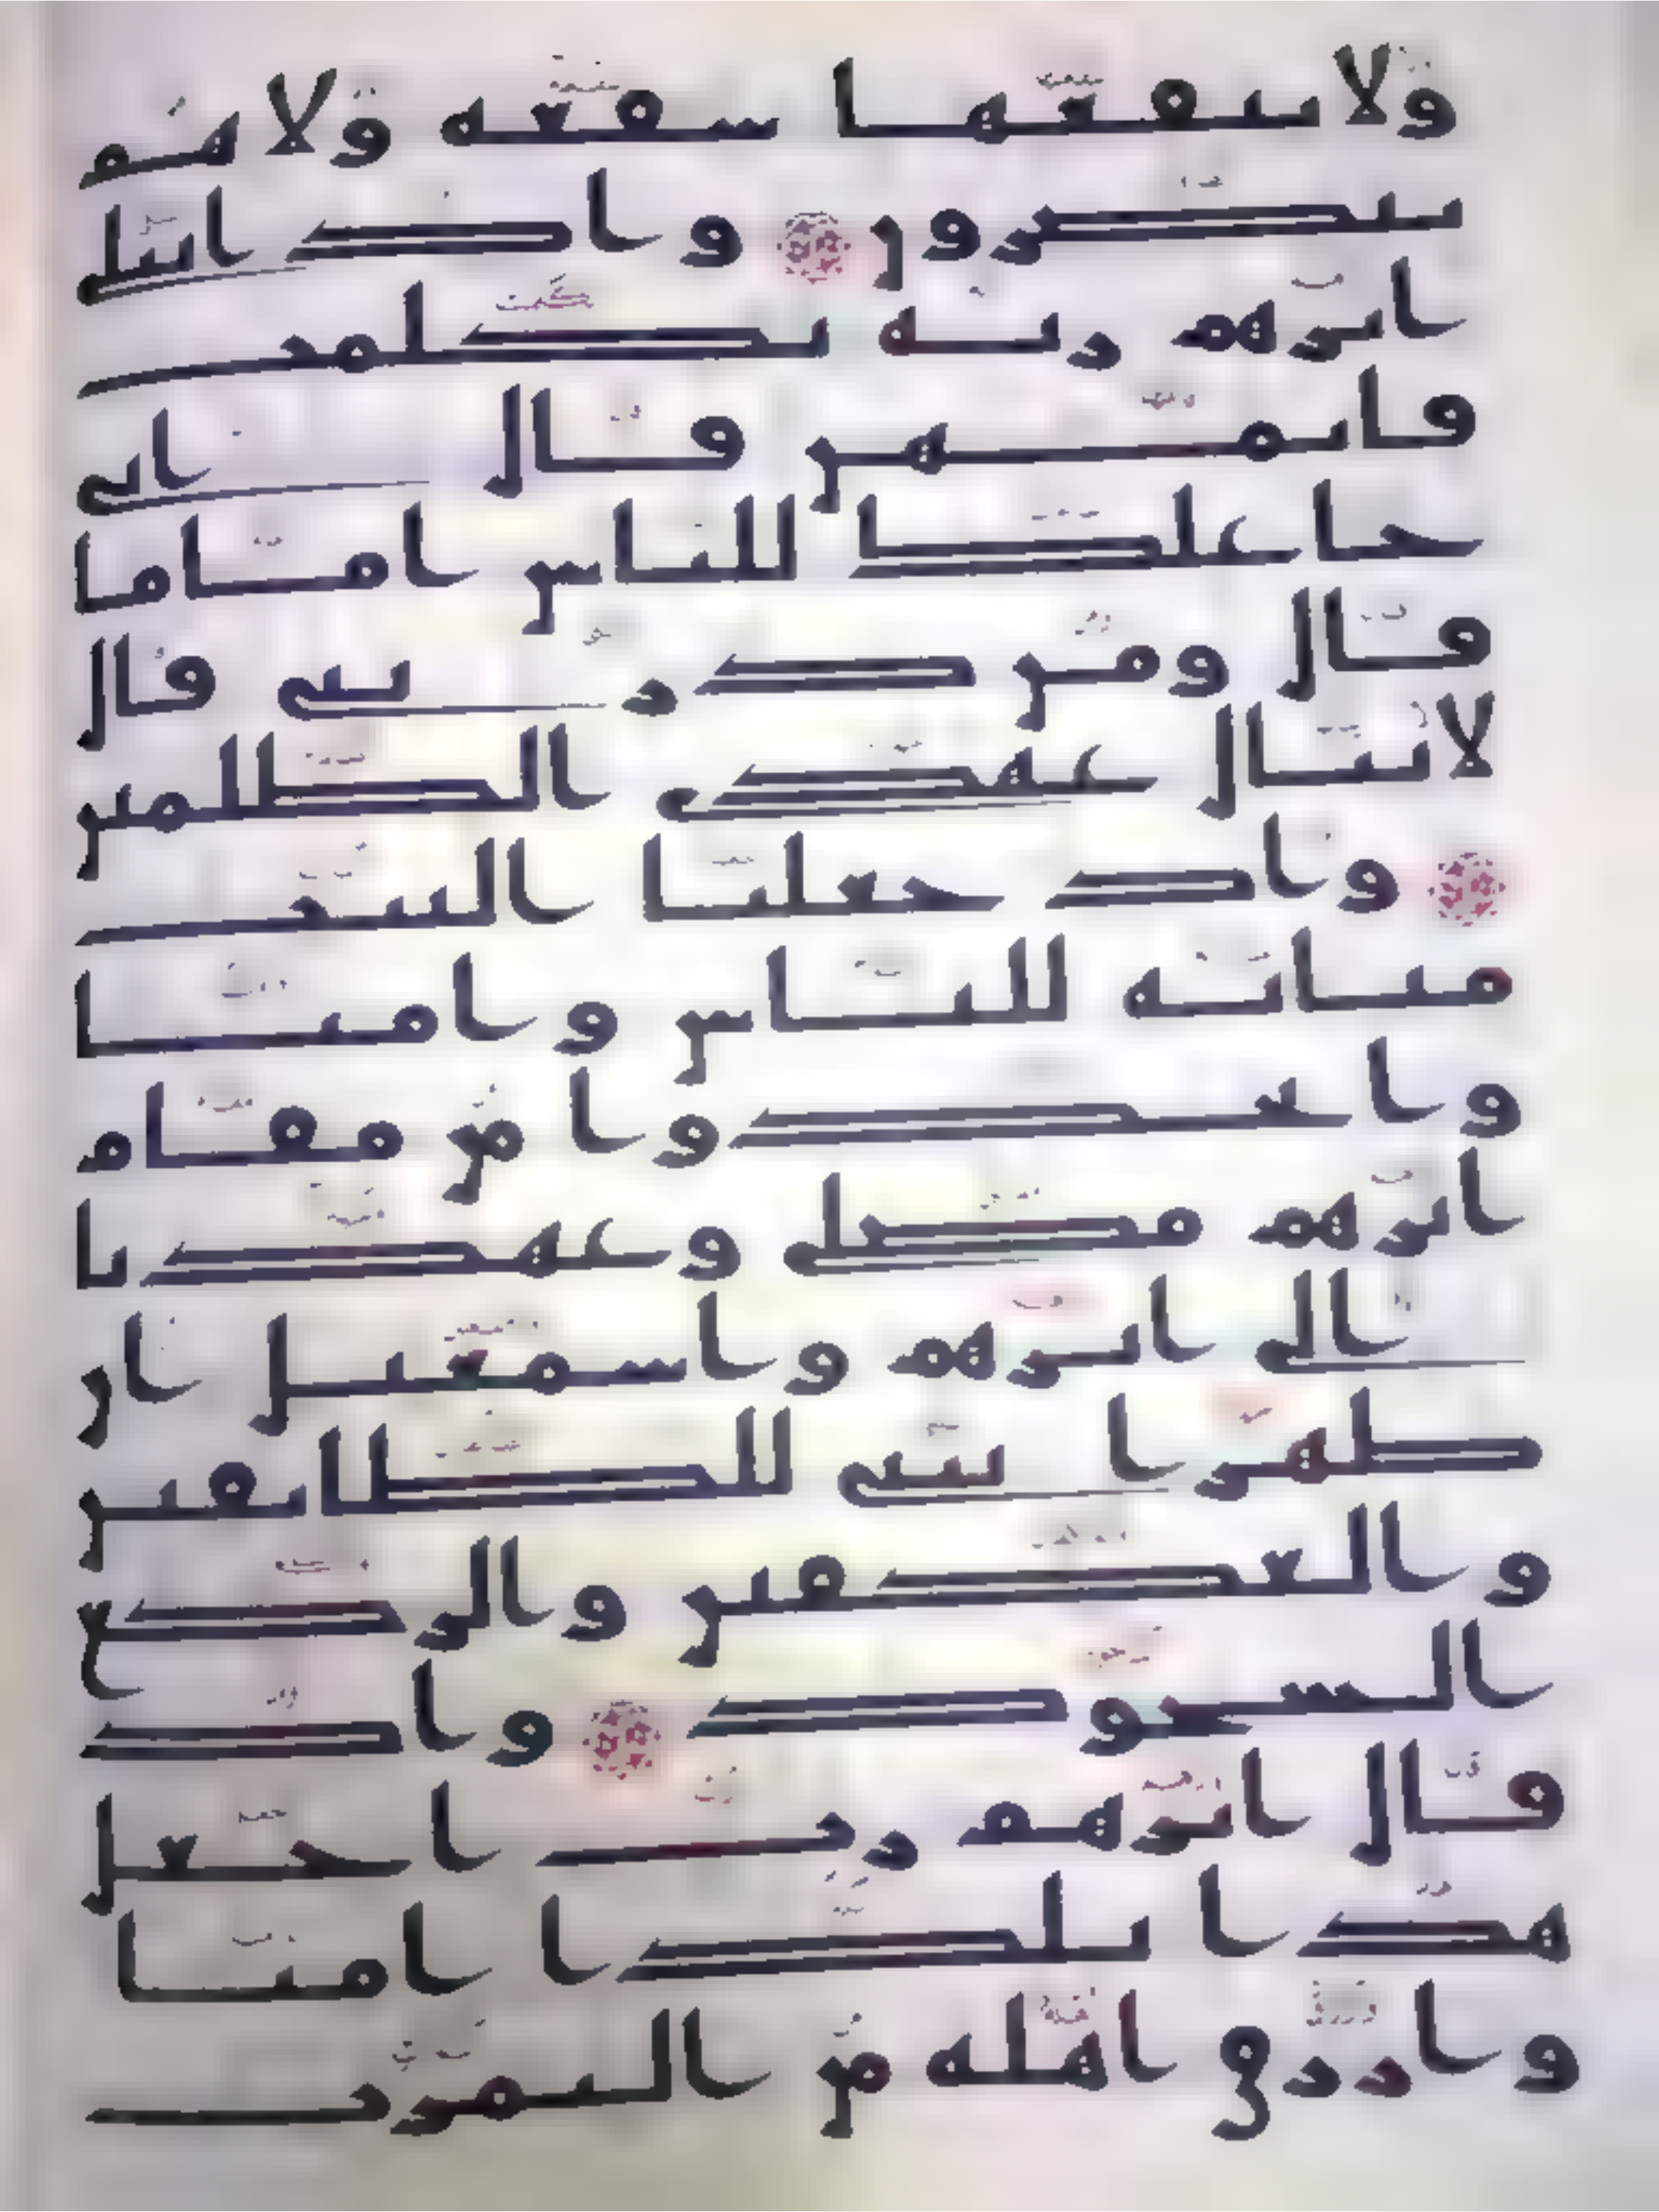 ولا تنفعها شفعة ولا هم
ينصرون واذ ابتلى
ابرهم ربه بكلمت
فاتمهن قال انى
جاعلك للناس اماما
قال ومن ذريتى قال
لا ينال عهدى الظلمين
واذ جعلنا البيت
مثابة للناس وامنا
واتخذوا من مقام
ابرهم مصلى وعهدنا
الى ابرهم واسمعيل ان
طهرا بيتى للطايفين
والعكفين والركع
السجود واذ
قال ابرهم رب اجعل
هذا بلدا امنا
وارزق اهله من الثمرت